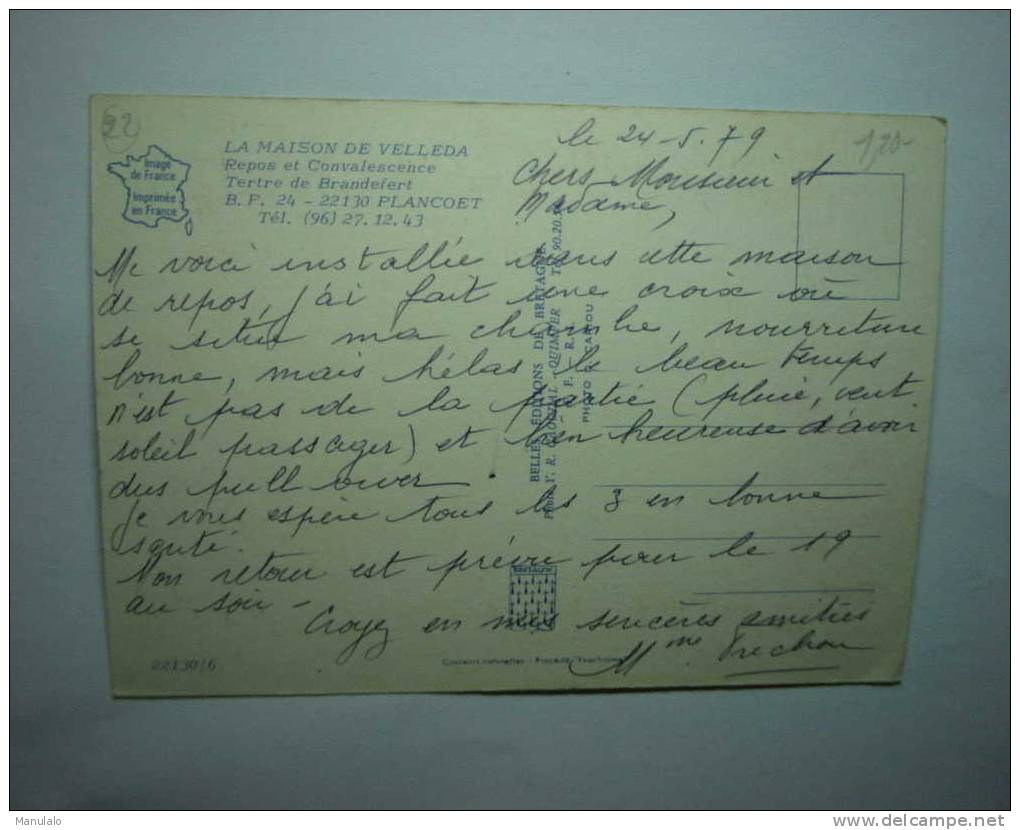 22
Image
de France
Imprimée
en France
LA MAISON DE VELLEDA
Repos et Convalescence
Tertre de Brandefert
B. P. 24 - 22130 PLANCOET
Tél. (96) 27.12.43
le 24-5.79
1,20-
Chers Monsieur et
Madame,
Me voici installée dans cette maison
de repos, j'ai fait une croix où
se situe ma chambre, nourriture
bonne, mais hélas le beau temps
n'est pas de la partie (pluie, vent
soleil passager) et bien heureuse d'avoir
des pull over.
Je vous espère tous les 3 en bonne
santé.
Mon retour est prévu pour le 19
au soir -
Croyez en mes sincères amitiés
Mme
BELLES ÉDITIONS DE BRETAGNE
QUIMPER
PHOTO
BRETAGNE
22130/6
Couleurs naturelles -
Manulalo
www.delcampe.net